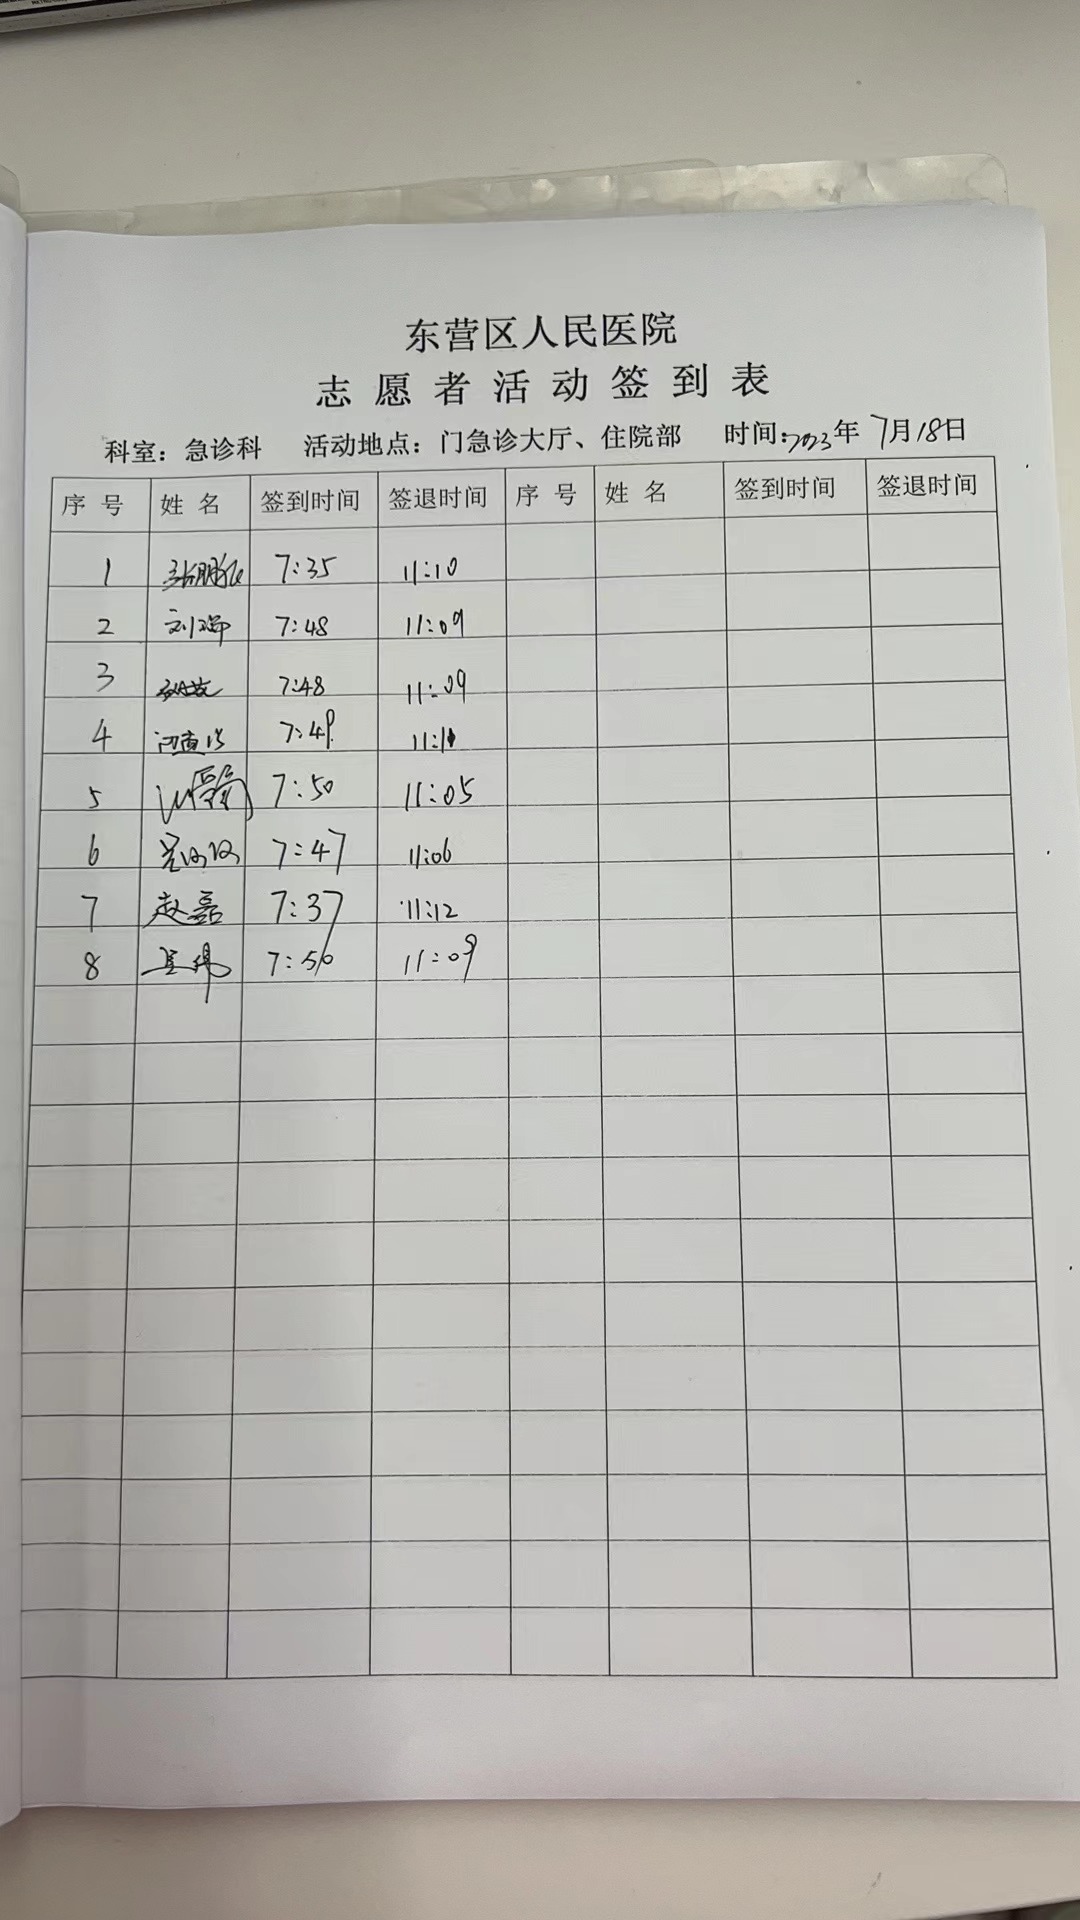 东营区人民医院
志愿者活动签到表
科室：急诊科 活动地点：门急诊大厅、住院部 时间：2023年 7月18日
序号 姓名 签到时间 签退时间 序号 姓名 签到时间 签退时间
1 7:35 11:10
2 7:48 11:09
3 7:48 11:09
4 7:49 11:10
5 7:50 11:05
6 7:47 11:06
7 赵磊 7:37 11:12
8 7:50 11:09